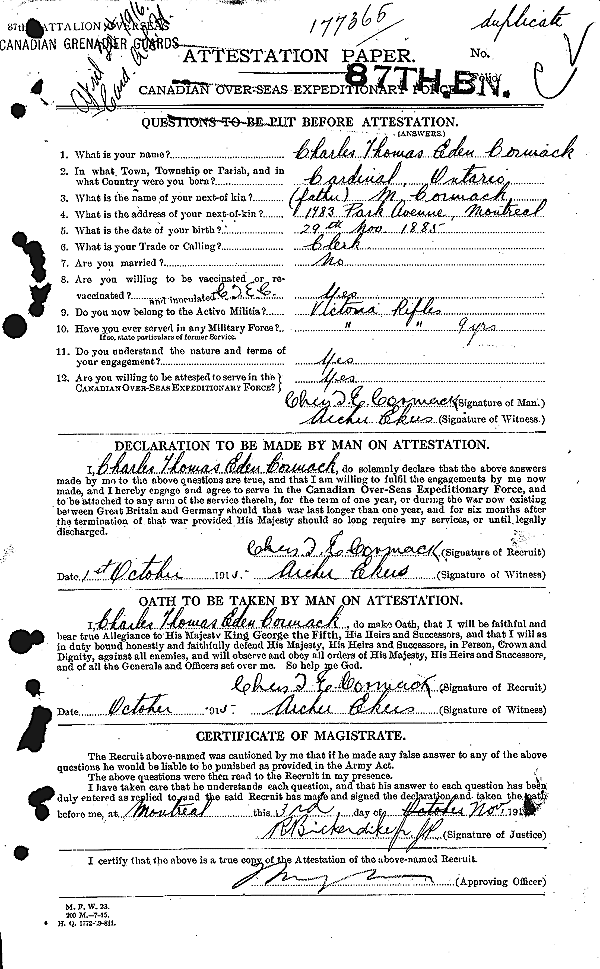 87th BATTALION OVERSEAS
CANADIAN GRENADIER GUARDS
177365
duplicate
ATTESTATION PAPER.
No.
87TH. BN.
Folio
CANADIAN OVER-SEAS EXPEDITIONARY FORCE
QUESTIONS TO BE PUT BEFORE ATTESTATION.
(ANSWERS)
1. What is your name? Charles Thomas Eden Cormack
2. In what Town, Township or Parish, and in
what Country were you born? Cardinal, Ontario
3. What is the name of your next-of kin? (father) M. Cormack,
4. What is the address of your next-of-kin? 1983 Park Avenue, Montreal
5. What is the date of your birth? 29th Nov. 1885
6. What is your Trade or Calling? Clerk
7. Are you married? No
8. Are you willing to be vaccinated or re-
vaccinated? and inoculated C.T.E.C. Yes
9. Do you now belong to the Active Militia? Victoria Rifles
10. Have you ever served in any Military Force? " " 9 yrs
If so, state particulars of former Service.
11. Do you understand the nature and terms of
your engagement? Yes
12. Are you willing to be attested to serve in the
CANADIAN OVER-SEAS EXPEDITIONARY FORCE? Yes
Chas T. E. Cormack (Signature of Man.)
Archer Ekers (Signature of Witness.)
DECLARATION TO BE MADE BY MAN ON ATTESTATION.
I, Charles Thomas Eden Cormack, do solemnly declare that the above answers
made by me to the above questions are true, and that I am willing to fulfil the engagements by me now
made, and I hereby engage and agree to serve in the Canadian Over-Seas Expeditionary Force, and
to be attached to any arm of the service therein, for the term of one year, or during the war now existing
between Great Britain and Germany should that war last longer than one year, and for six months after
the termination of that war provided His Majesty should so long require my services, or until legally
discharged.
Chas T. E. Cormack (Signature of Recruit)
Date 1st October 1915. Archer Ekers (Signature of Witness)
OATH TO BE TAKEN BY MAN ON ATTESTATION.
I, Charles Thomas Eden Cormack, do make Oath, that I will be faithful and
bear true Allegiance to His Majesty King George the Fifth, His Heirs and Successors, and that I will as
in duty bound honestly and faithfully defend His Majesty, His Heirs and Successors, in Person, Crown and
Dignity, against all enemies, and will observe and obey all orders of His Majesty, His Heirs and Successors,
and of all the Generals and Officers set over me. So help me God.
Chas T. E. Cormack (Signature of Recruit)
Date October 1915. Archer Ekers (Signature of Witness)
CERTIFICATE OF MAGISTRATE.
The Recruit above-named was cautioned by me that if he made any false answer to any of the above
questions he would be liable to be punished as provided in the Army Act.
The above questions were then read to the Recruit in my presence.
I have taken care that he understands each question, and that his answer to each question has been
duly entered as replied to and the said Recruit has made and signed the declaration and taken the oath
before me, at Montreal this 3rd day of October Nov. 191
R Bickerdike Jr JP (Signature of Justice)
I certify that the above is a true copy of the Attestation of the above-named Recruit.
(Approving Officer)
M. F. W. 23.
200 M.—7-15.
H. Q. 1772-39-841.